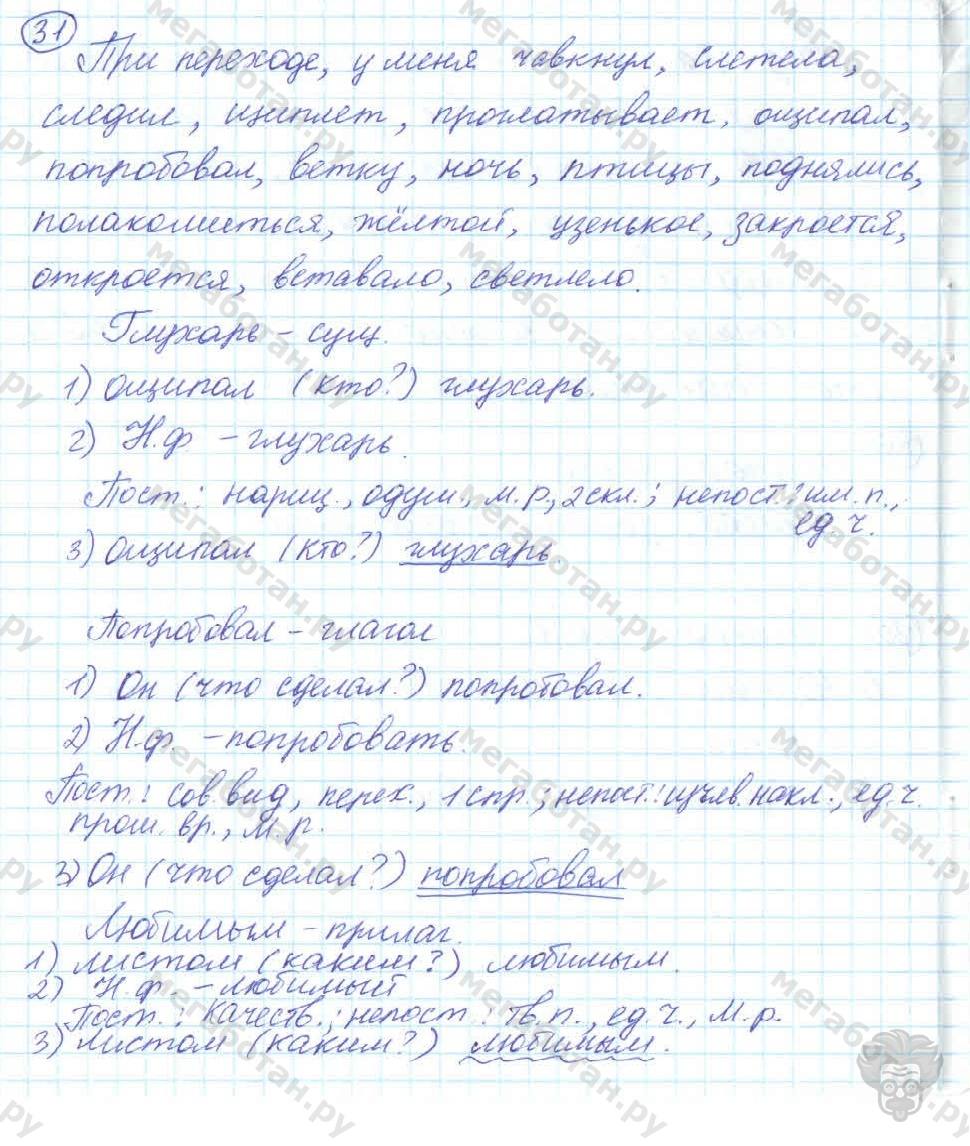 31
При переходе, у меня чавкнул, слетела,
следил, щиплет, проглатывает, ощипал,
попробовал, ветку, ночь, птицы, поднялись,
полакомиться, жёлтой, узенькое, закроется,
откроется, вставало, светлело.
Глухарь – сущ.
1) ощипал (кто?) глухарь.
2) Н.ф. – глухарь.
Пост.: нариц., одуш., м.р., 2 скл.; непост.: им. п.,
ед. ч.
3) ощипал (кто?) глухарь.
Попробовал – глагол
1) Он (что сделал?) попробовал.
2) Н.ф. – попробовать.
Пост.: сов. вид, перех., 1 спр.; непост.: изъяв. накл., ед. ч.
прош. вр., м.р.
3) Он (что сделал?) попробовал
Любимым – прилаг.
1) листом (каким?) любимым.
2) Н.ф. – любимый
Пост.: качеств.; непост.: тв. п., ед. ч., м.р.
3) листом (каким?) любимым.
мегаботан.ру